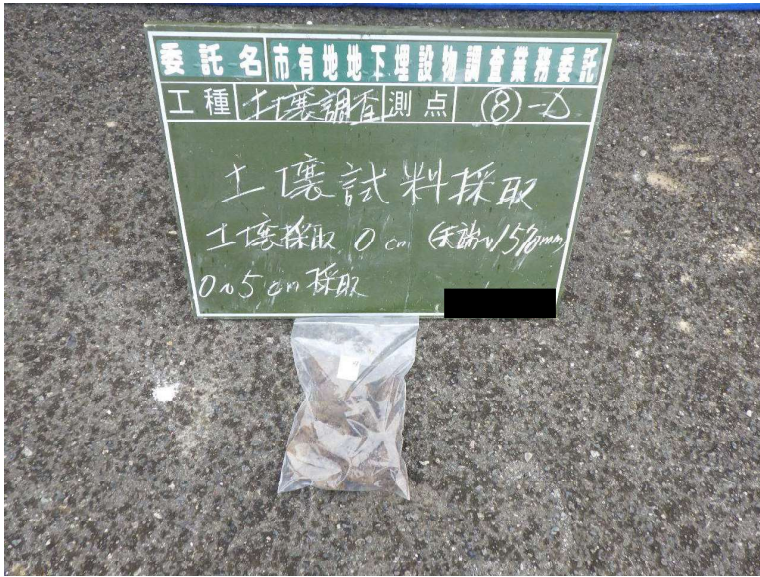 委託名 市有地地下埋設物調査業務委託
工種 土壌調査 測点 ⑧-
土壌試料採取
土壌採取 0cm (天端~1570mm)
0~5cm採取